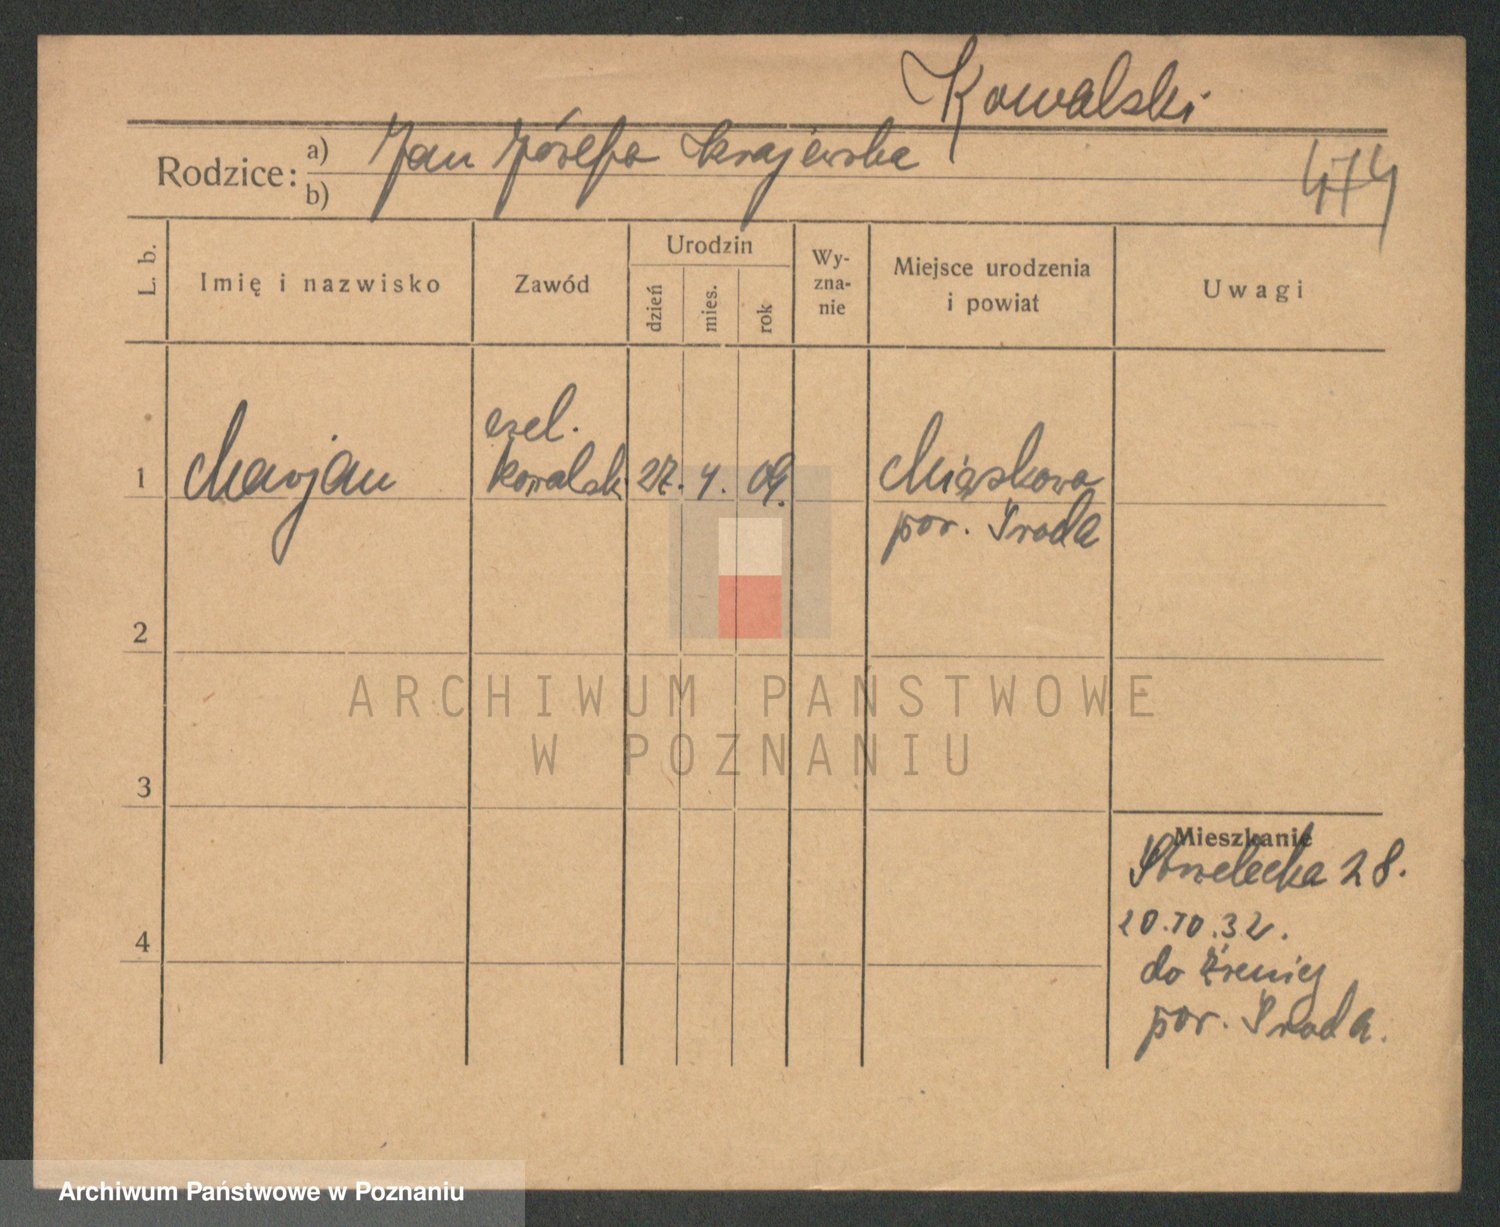 Kowalski
Rodzice: a) Jan Józefa Krajewska
b)
474
L. b.
Imię i nazwisko
Zawód
Urodzin
dzień
mies.
rok
Wy-
zna-
nie
Miejsce urodzenia
i powiat
Uwagi
1
Marjan
czel.
kowalsk
27. 4. 09.
Miąskowo
pow. Środa
2
3
4
Mieszkanie
Strzelecka 28.
20.10.32.
do Źrenicy
pow. Środa.
ARCHIWUM PAŃSTWOWE
W POZNANIU
Archiwum Państwowe w Poznaniu